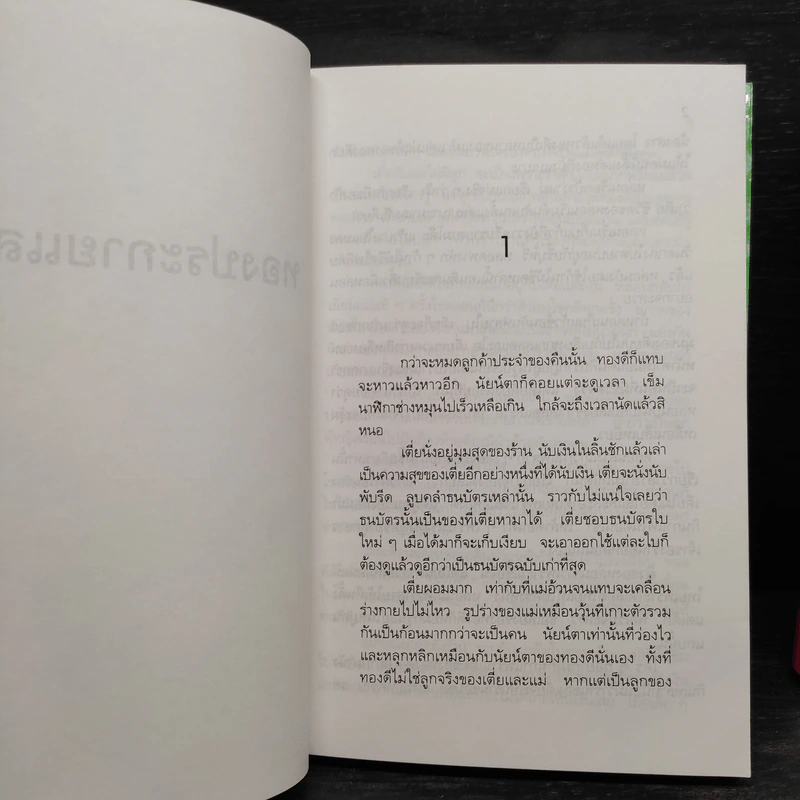 1
กว่าจะหมดลูกค้าประจำของคืนนั้น ทองดีก็แทบ
จะหาวแล้วหาวอีก นัยน์ตาก็คอยแต่จะดูเวลา เข็ม
นาฬิกาช่างหมุนไปเร็วเหลือเกิน ใกล้จะถึงเวลานัดแล้วสิ
หนอ
เตี่ยนั่งอยู่มุมสุดของร้าน นับเงินในลิ้นชักแล้วเล่า
เป็นความสุขของเตี่ยอีกอย่างหนึ่งที่ได้นับเงิน เตี่ยจะนั่งนับ
พับรีด ลูบคลำธนบัตรเหล่านั้น ราวกับไม่แน่ใจเลยว่า
ธนบัตรนั้นเป็นของที่เตี่ยหามาได้ เตี่ยชอบธนบัตรใบ
ใหม่ ๆ เมื่อได้มาก็จะเก็บเงียบ จะเอาออกใช้แต่ละใบก็
ต้องดูแล้วดูอีกว่าเป็นธนบัตรฉบับเก่าที่สุด
เตี่ยผอมมาก เท่ากับที่แม่อ้วนจนแทบจะเคลื่อน
ร่างกายไปไม่ไหว รูปร่างของแม่เหมือนวุ้นที่เกาะตัวรวม
กันเป็นก้อนมากกว่าจะเป็นคน นัยน์ตาเท่านั้นที่ว่องไว
และหลุกหลิกเหมือนกับนัยน์ตาของทองดีนั่นเอง ทั้งที่
ทองดีไม่ใช่ลูกจริงของเตี่ยและแม่ หากแต่เป็นลูกของ